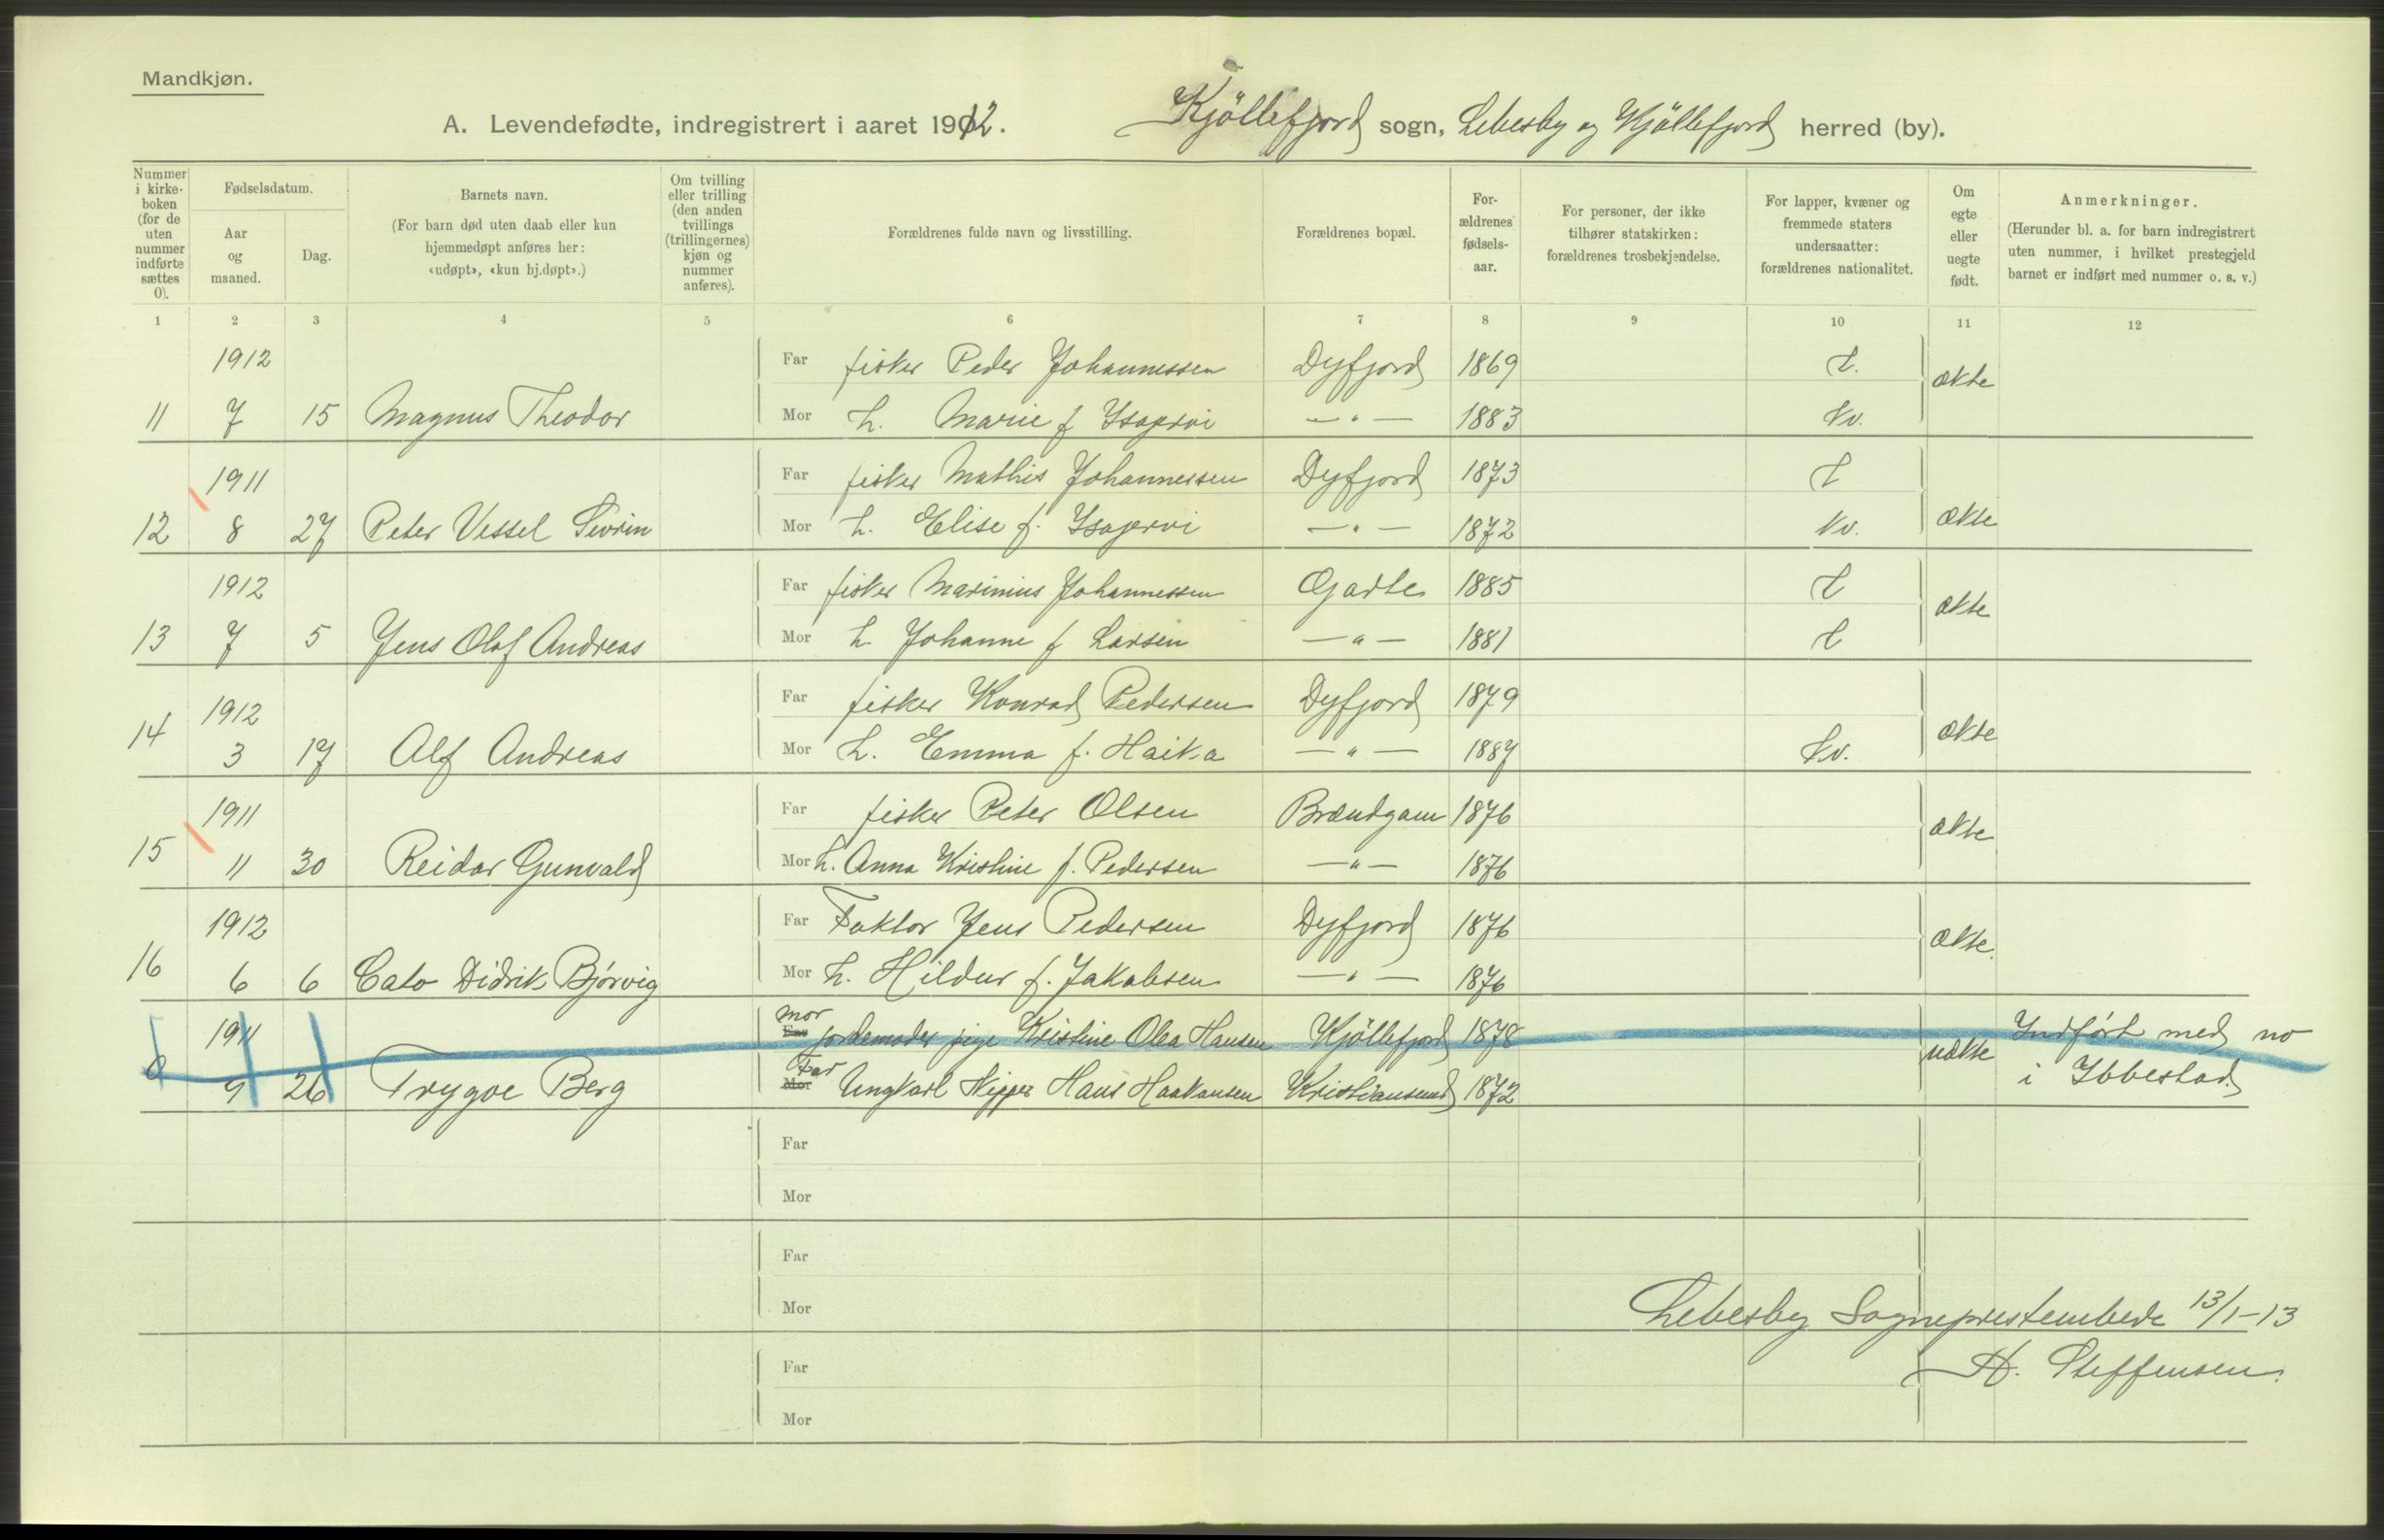 Mandkjøn.
A. Levendefødte, indregistrert i aaret 1912.
Kjöllefjord sogn, Lebesby og Kjöllefjord herred (by).
Nummer i kirke-boken (for de uten nummer indførte sættes 0).
Fødselsdatum.
Aar og maaned.
Dag.
Barnets navn.
(For barn død uten daab eller kun hjemmedøpt anføres her: «udøpt», «kun hj.døpt».)
Om tvilling eller trilling (den anden tvillings (trillingernes) kjøn og nummer anføres).
Forældrenes fulde navn og livsstilling.
Forældrenes bopæl.
For-ældrenes fødsels-aar.
For personer, der ikke tilhører statskirken: forældrenes trosbekjendelse.
For lapper, kvæner og fremmede staters undersaatter: forældrenes nationalitet.
Om egte eller uegte født.
Anmerkninger.
(Herunder bl. a. for barn indregistrert uten nummer, i hvilket prestegjeld barnet er indført med nummer o. s. v.)
1 2 3 4 5 6 7 8 9 10 11 12
1912 Far fisker Peder Johannessen Dyfjord 1869 L. ekte
11 7 15 Magnus Theodor Mor h. Marie f - " - 1883 Kv.
1911 Far fisker Mathis Johannessen Dyfjord 1873 L
12 8 27 Peter Vessel Sivrin Mor h. Elise f. - " - 1872 Kv. ekte
1912 Far fisker Marinius Johannessen 1885 L ekte
13 7 5 Jens Olaf Andreas Mor h. Johanne f Larsen - " - 1881 L
1912 Far fisker Konrad Pedersen Dyfjord 1879
14 3 17 Alf Andreas Mor h. Emma f. Haika - " - 1887 Kv. ekte
1911 Far fisker Peter Olsen Brændgam 1876
15 11 30 Reidar Gunvald Mor h. Anna Kristine f. Pedersen - " - 1876 ekte
1912 Far Faktor Jens Pedersen Dyfjord 1876
16 6 6 Cato Didrik Bjørvig Mor h. Hildur f. Jakobsen - " - 1876 ekte.
1911 Mor Far jordemoder pige Kristine Olea Hansen Kjöllefjord 1878 Indført med no
0 9 26 Trygve Berg Far Mor Ungkarl Skipper Hans Haakansen Kristiansund 1872 uekte i Ibbestad.
Far
Mor
Far
Mor
Lebesby Sogneprestembede 13/1-13
Far
H. Steffensen.
Mor